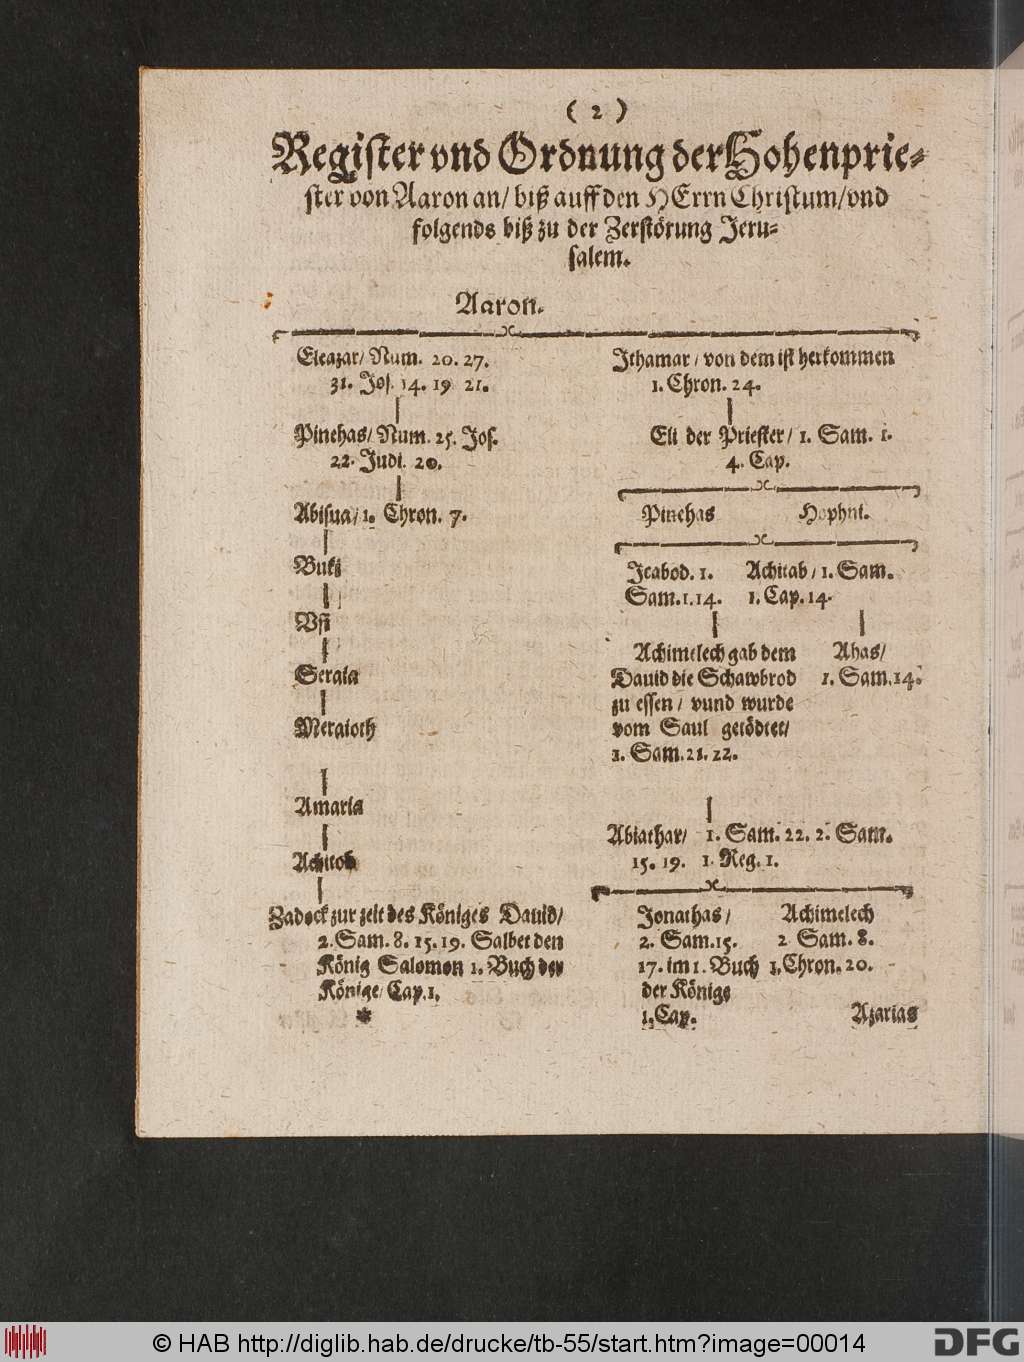 ( 2 )
Register vnd Ordnung der Hohenprie-
ster von Aaron an/ biß auff den HErrn Christum/ vnd
folgends biß zu der Zerstörung Jeru-
salem.
Aaron.
Eleazar/ Num. 20. 27.
31. Jos. 14. 19 21.
Pinehas/ Num. 25. Jos.
22. Judi. 20.
Abisua/ 1. Chron. 7.
Buki
Vsi
Seraia
Meraioth
Amaria
Achitob
Zadock zur zeit des Königes Dauid/
2. Sam. 8. 15. 19. Salbet den
König Salomon 1. Buch der
Könige/ Cap. 1.
*
Ithamar/ von dem ist herkommen
1. Chron. 24.
Eli der Priester/ 1. Sam. 1.
4. Cap.
Pinehas Hophni.
Icabod. 1. Achitab/ 1. Sam.
Sam. 1. 14. 1. Cap. 14.
Achimelech gab dem Ahas/
Dauid die Schawbrod 1. Sam. 14.
zu essen/ vund wurde
vom Saul getödtet/
1. Sam. 21. 22.
Abiathar/ 1. Sam. 22. 2. Sam.
15. 19. 1. Reg. 1.
Jonathas/ Achimelech
2. Sam. 15. 2 Sam. 8.
17. im 1. Buch 1. Chron. 20.
der Könige
1. Cap. Azarias
© HAB http://diglib.hab.de/drucke/tb-55/start.htm?image=00014
DFG